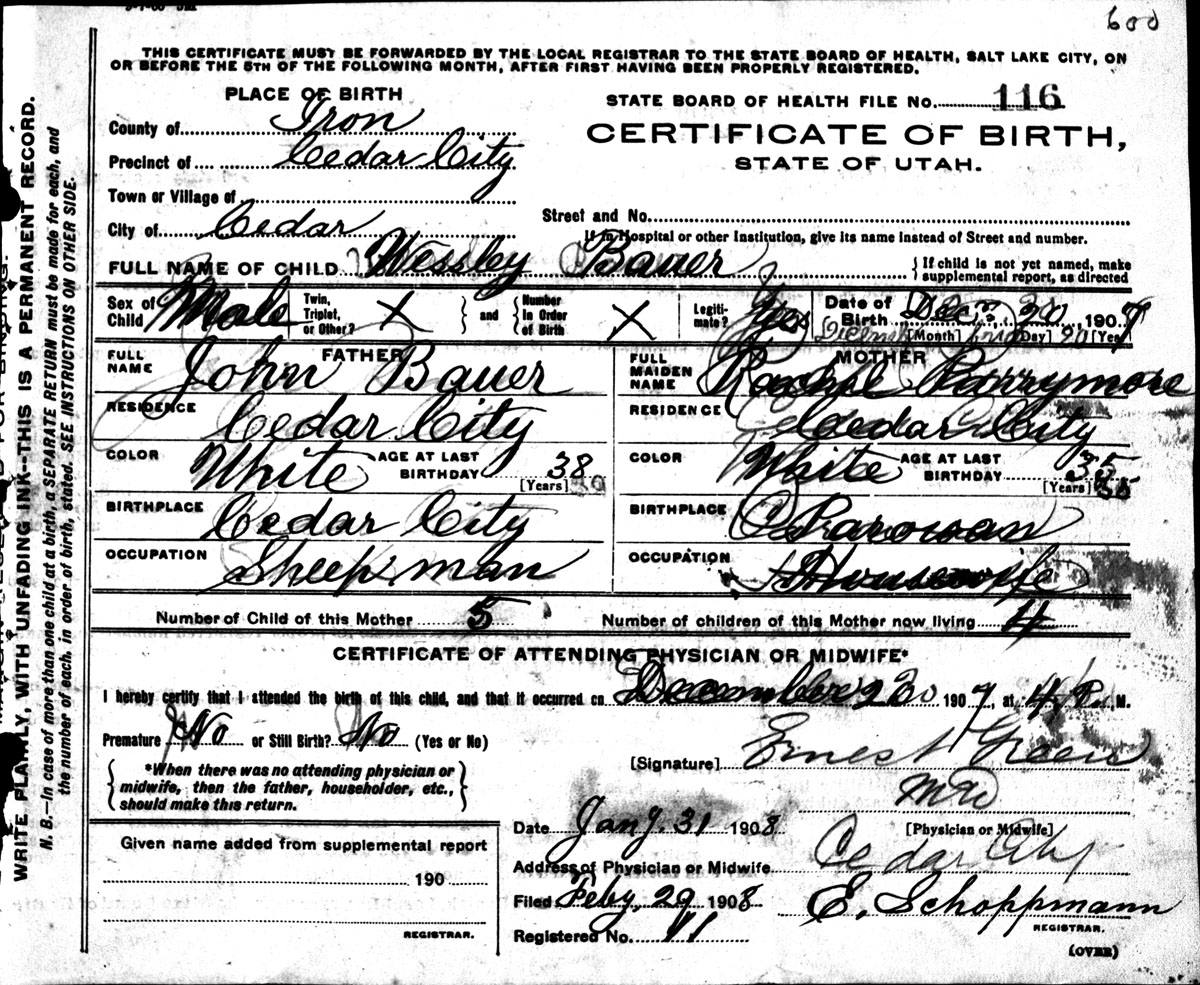 600
THIS CERTIFICATE MUST BE FORWARDED BY THE LOCAL REGISTRAR TO THE STATE BOARD OF HEALTH, SALT LAKE CITY, ON
OR BEFORE THE 5TH OF THE FOLLOWING MONTH, AFTER FIRST HAVING BEEN PROPERLY REGISTERED.
PLACE OF BIRTH
County of Iron
Precinct of Cedar City
Town or Village of
City of Cedar
STATE BOARD OF HEALTH FILE No. 116
CERTIFICATE OF BIRTH,
STATE OF UTAH.
Street and No.
If in Hospital or other Institution, give its name instead of Street and number.
FULL NAME OF CHILD Wessley Bauer
{ If child is not yet named, make
supplemental report, as directed
Sex of Child Male
Twin, Triplet, or Other? X
and
Number in Order of Birth X
Legitimate? Yes
Date of Birth Dec. 20 1907
[Month] [Day] [Year]
FATHER
FULL NAME John Bauer
RESIDENCE Cedar City
COLOR White AGE AT LAST BIRTHDAY 38
[Years] 39
BIRTHPLACE Cedar City
OCCUPATION Sheep man
MOTHER
FULL MAIDEN NAME Rachel Parrymore
RESIDENCE Cedar City
COLOR White AGE AT LAST BIRTHDAY 35
[Years] 35
BIRTHPLACE Parowan
OCCUPATION Housewife
Number of Child of this Mother 5
Number of children of this Mother now living 4
CERTIFICATE OF ATTENDING PHYSICIAN OR MIDWIFE*
I hereby certify that I attended the birth of this child, and that it occurred on December 20 1907, at 4 P. M.
Premature No or Still Birth? No (Yes or No)
{ *When there was no attending physician or
midwife, then the father, householder, etc.,
should make this return. }
[Signature] Ernest Green
MD
[Physician or Midwife]
Date Jany. 31 1908
Address of Physician or Midwife Cedar City
Filed Feby. 29 1908 E. Schoppmann
REGISTRAR.
Registered No. 11
(OVER)
Given name added from supplemental report
190
REGISTRAR.
WRITE PLAINLY, WITH UNFADING INK--THIS IS A PERMANENT RECORD.
N. B.—In case of more than one child at a birth, a SEPARATE RETURN must be made for each, and
the number of each, in order of birth, stated. SEE INSTRUCTIONS ON OTHER SIDE.